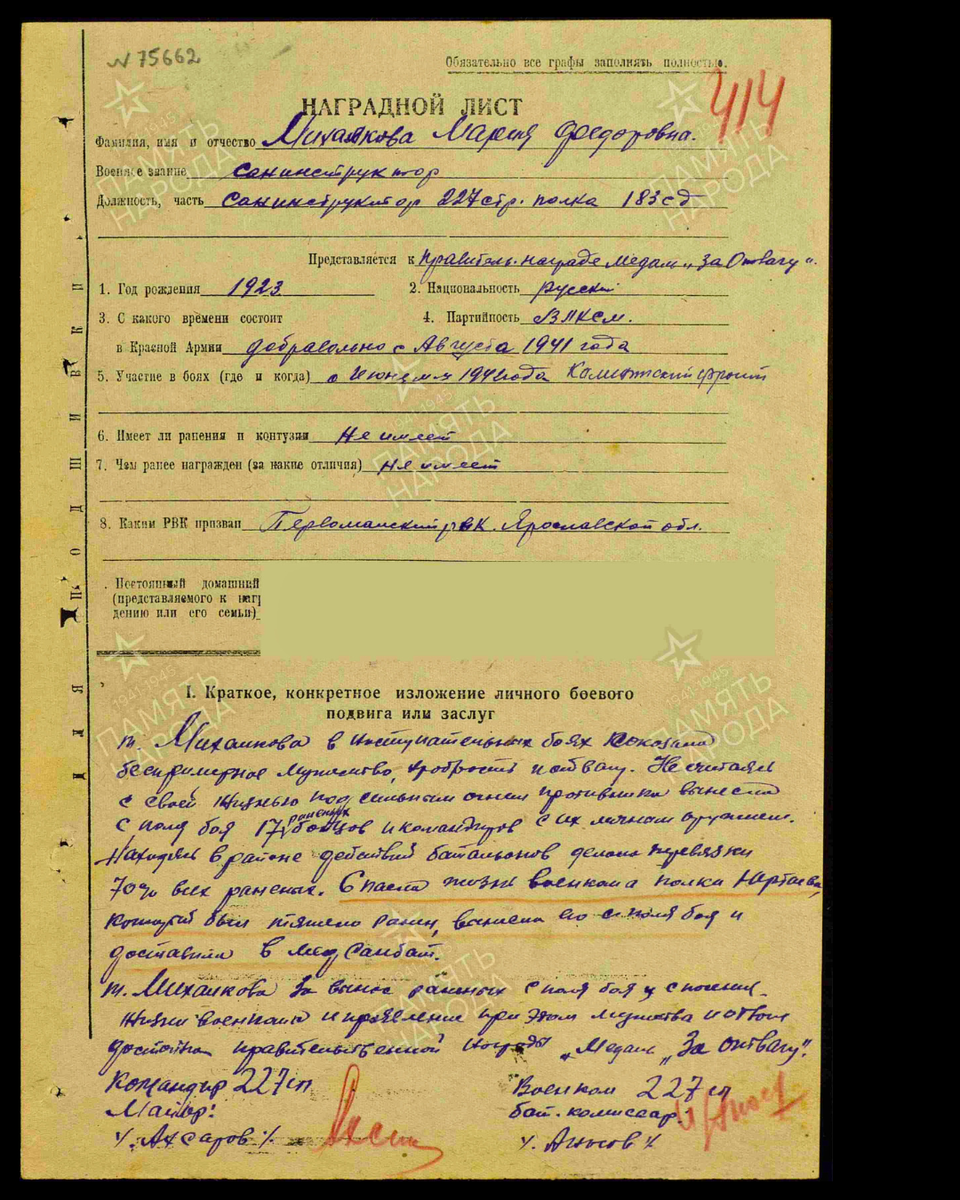 N 75662
Обязательно все графы заполнять полностью.
414
НАГРАДНОЙ ЛИСТ
Фамилия, имя и отчество Михайкова Мария Федоровна.
Военное звание санинструктор
Должность, часть Санинструктор 227 стр. полка 183 сд
Представляется к правительст. награде Медаль „За Отвагу".
1. Год рождения 1923 2. Национальность Русский
3. С какого времени состоит 4. Партийность ВЛКСМ.
в Красной Армии добровольно с Августа 1941 года
5. Участие в боях (где и когда) с Июня м-ц 1942 года Калининский фронт
6. Имеет ли ранения и контузии Не имеет
7. Чем ранее награжден (за какие отличия) Не имеет
8. Каким РВК призван Первомайский рвк Ярославской обл.
Постоянный домашний
(представляемого к наг
дению или его семьи)
ДЛЯ ПОДШИВКИ
I. Краткое, конкретное изложение личного боевого
подвига или заслуг
т. Михайкова в наступательных боях показала
беспримерное мужество, храбрость и отвагу. Не считаясь
с своей жизнью под сильным огнем противника вынесла
с поля боя 17 раненых бойцов и командиров с их личным оружием.
Находясь в районе действий батальонов делала перевязки
70% всех раненых. Спасла жизнь военкома полка
который был тяжело ранен, вынесла его с поля боя и
доставила в МедСанбат.
т. Михайкова за вынос раненых с поля боя и спасения
жизни военкома и проявление при этом мужества и отваги
достойна правительственной награды „Медаль „За отвагу".
Командир 227 сп Военком 227 сп
Майор: бат. комиссар
/. Ахсаров / /. /
ПАМЯТЬ НАРОДА
1941-1945